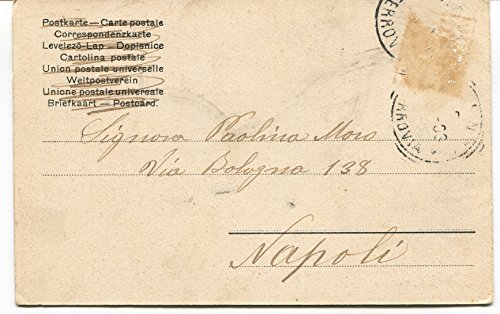 Postkarte — Carte postale
Correspondenzkarte
Levelező-Lap — Dopisnice
Cartolina postale
Union postale universelle
Weltpostverein
Unione postale universale
Briefkaart — Postcard.
Signora Paolina Moro
Via Bologna 138
Napoli